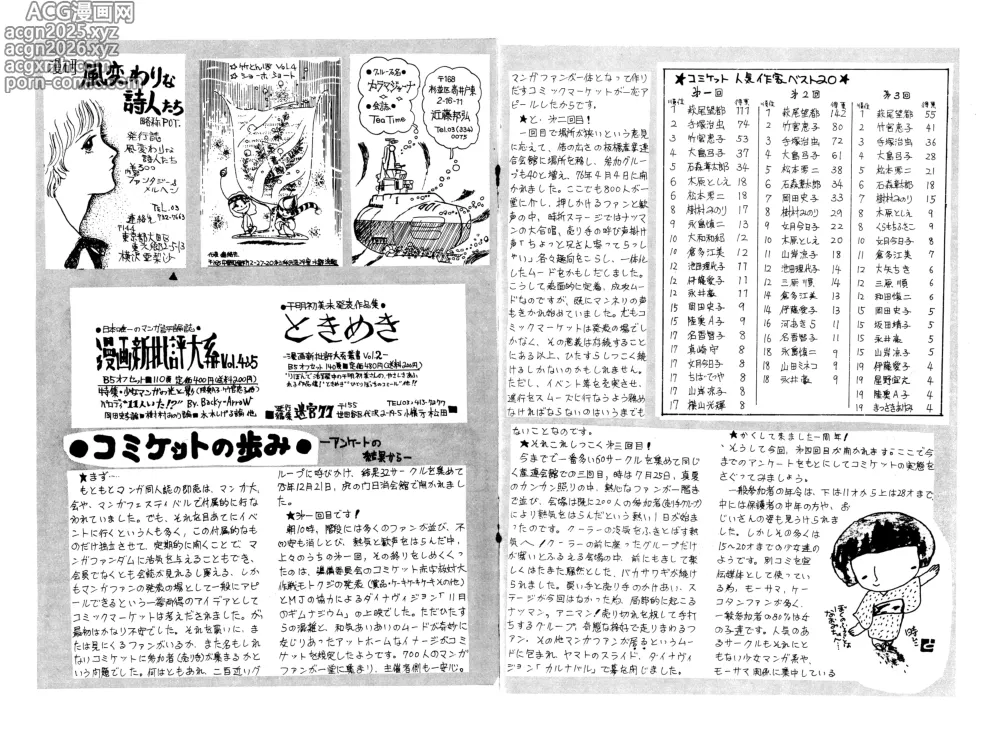 ACG漫画网
acgn2025.xyz
acgn2026.xyz
porn-comic.com
風変わりな
詩人たち
略称 POT.
発行誌
風変わりな
詩人たち
¥300
ファンタジー&
メルヘン
TEL.03
連絡先 732-7563
〒144
横沢亜梨沙
☆竹とんぼ VOL.4
☆ショートショート
●グループ名●
●会誌●
Tea Time
〒168
杉並区高井戸東
2-16-11
近藤邦弘
Tel.03(334)
0075
●日本唯一のマンガ評論誌●
漫画新批評大系 Vol.4&5
B5オフセット■110頁■定価400円(送料200円)
特集・少女マンガの光と影
パロディ"11人いた!?" By. Backy-Arrow
●干明初美未発表作品集●
ときめき
-漫画新批評大系叢書 Vol.2-
B5オフセット
発行
迷宮'77
〒155
世田谷区代沢2-19-5 小浜方 松田
●コミケットの歩み●
―アンケートの
結果から―
★まず……
もともとマンガ同人誌の即売は、マンガ大
会や、マンガフェスティバルで付属的に行な
われていました。でも、それを目あてにイベ
ントに行くという人も多く、この付属的なも
のだけ独立させて、定期的に開くことで、マ
ンガファンダムに活気を与えることもでき、
会員でなくとも会誌が見れるし買える、しか
もマンガファンの発表の場として一般にアピ
ールできるという一石両得のアイデアとして
コミックマーケットは考えだされました。が、
最初はかなり不安でした。それを買いに、ま
たは見にくるファンがいるか、また名もしれ
ないコミケットに参加者(売り手)が集まるかと
いう問題でした。何はともあれ、二百近いグ
ループに呼びかけ、結果32サークルを集めて
75年12月21日、虎の門日消会館で開かれまし
た。
★第一回目です!
朝10時、階段には多くのファンが並び、不
安も消しとび、熱気と歓声をはらんだ中、
上々のうちの第一回、その締りをしめくくっ
たのは、準備委員会のコミケット赤字救対大
作戦モトクジの発表(賞品・ケーキ・ケーキ・ケーキその他)
とMJの協力によるダイナヴィジョン「11日
のギムナジウム」の上映でした。ただひたす
らの混雑と、和気あいあいのムードが奇妙に
まじりあったアットホームなイメージがコミ
ケットを規定したようです。700人のマンガ
ファンが一堂に集まり、主催者側も一安心。
マンガファンが一体となって作り
だすコミックマーケットが一応ア
ピールしたからです。
★と、第二回目!
一回目で場所が狭いという意見
に応えて、倍の広さの板橋産業連
合会館に場所を移し、参加グルー
プも40と増え、76年4月4日に開
かれました。ここでも800人が一
堂に介し、押しかけるファンと歓
声の中、時折ステージではナツマ
ンの大合唱、売り手の呼び声掛け
声「ちょっと兄さん寄ってらっし
ゃい」。各々趣向をこらし、一体化
したムードをかもしだしました。
こうして表面的に定着、成功ムー
ドなのですが、既にマンネリの声
もきかれ始めていました。尤もコ
ミックマーケットは発表の場でし
かなく、その意義は存続すること
にある以上、ひたすらしつこく続
けるしかないのかもしれません。
ただし、イベント等を充実させ、
進行をスムーズに行なうよう務め
なければならないのはいうまでも
ないことなのです。
★それこれしつこく第三回目!
今までで一番多い60サークルを集めて同じ
く産連会館での三回目、時は7月25日、真夏
のカンカン照りの中、熱心なファンが一階ま
で並び、会場は既に200人の参加者
により熱気をはらんだという熱い1日が始ま
ったのです。クーラーの活気をふきとばす熱
気へ!クーラーの前に座ったグループだけ
が寒いとふるえる会場の中、前にもまして楽
しくはたまた騒然とした、バカサワギが続け
られました。買い手と売り手のかけあい、ス
テージが今回はなかった為、局部的に起こる
ナツマン、アニマン!売り切れを祝して手打
ちするグループ、奇態な格好で走りまわるフ
ァン、その他マンガファンが居るというムー
ドに包まれ、ヤマトのスライド、ダイナヴィ
ジョン「カルナバル」で幕を閉じました。
★コミケット 人気作家ベスト20★
第一回
順位 得票
1 萩尾望都 117
2 手塚治虫 74
3 竹宮恵子 53
4 大島弓子 37
5 石森章太郎 34
6 木原としえ 18
6 松本零二 18
8 樹村みのり 17
9 永島慎二 13
10 大和和紀 12
10 倉多江美 12
12 池田理代子 11
12 伊藤愛子 11
12 永井豪 11
15 岡田史子 9
15 陸奥A子 9
17 名香智子 8
17 真崎守 8
17 女月今日子 8
17 ちばてつや 8
17 山岸凉子 8
17 横山光輝 8
第2回
順位 得票
1 萩尾望都 142
2 竹宮恵子 80
3 手塚治虫 72
4 大島弓子 61
5 松本零二 38
6 石森章太郎 34
7 岡田史子 33
8 樹村みのり 29
9 女月今日子 22
10 木原としえ 20
11 山岸凉子 18
12 池田理代子 14
12 三原順 14
14 倉多江美 13
14 伊藤愛子 13
16 河あきら 11
17 名香智子 10
18 永島慎二 9
18 山田ミネコ 9
18 永井豪 9
第3回
順位 得票
1 萩尾望都 55
2 竹宮恵子 41
3 手塚治虫 36
4 大島弓子 28
5 松本零二 21
6 石森章太郎 18
7 樹村みのり 15
8 木原としえ 9
9 くらもちふさこ 9
10 女月今日子 8
11 倉多江美 7
12 大矢ちき 6
12 三原順 6
12 和田慎二 6
15 岡田史子 5
15 坂田靖子 5
15 永井豪 5
15 山岸凉子 5
19 伊藤愛子 4
19 星野宣之 4
19 陸奥A子 4
19 まつざきあけみ 4
★かくして来ました一周年!
そうして今回、第四回目が開かれます。ここで今
までのアンケートをもとにしてコミケットの実態を
さぐってみましょう。
一般参加者の年令は、下は11才から上は28才まで、
中には保護者の中年の方や、お
じいさんの姿も見うけられま
した。しかしその多くは
15~20才までの少女達の
ようです。別コミを宣
伝媒体として使ってい
る為、モーサマ、ケー
コタンファンが多く、
一般参加者の80%は女
の子達です。人気のあ
るサークルもそれにと
もない少女マンガ系や、
モーサマ関係に集中している